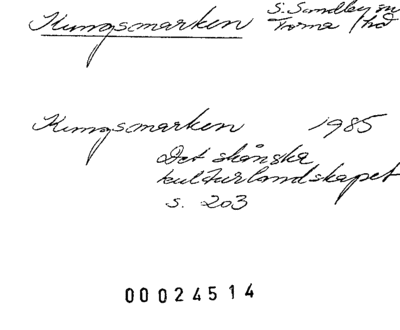 Kungsmarken S. Sandby sn
Torna hd
Kungsmarken 1985
Det skånska
kulturlandskapet
s. 203
00024514